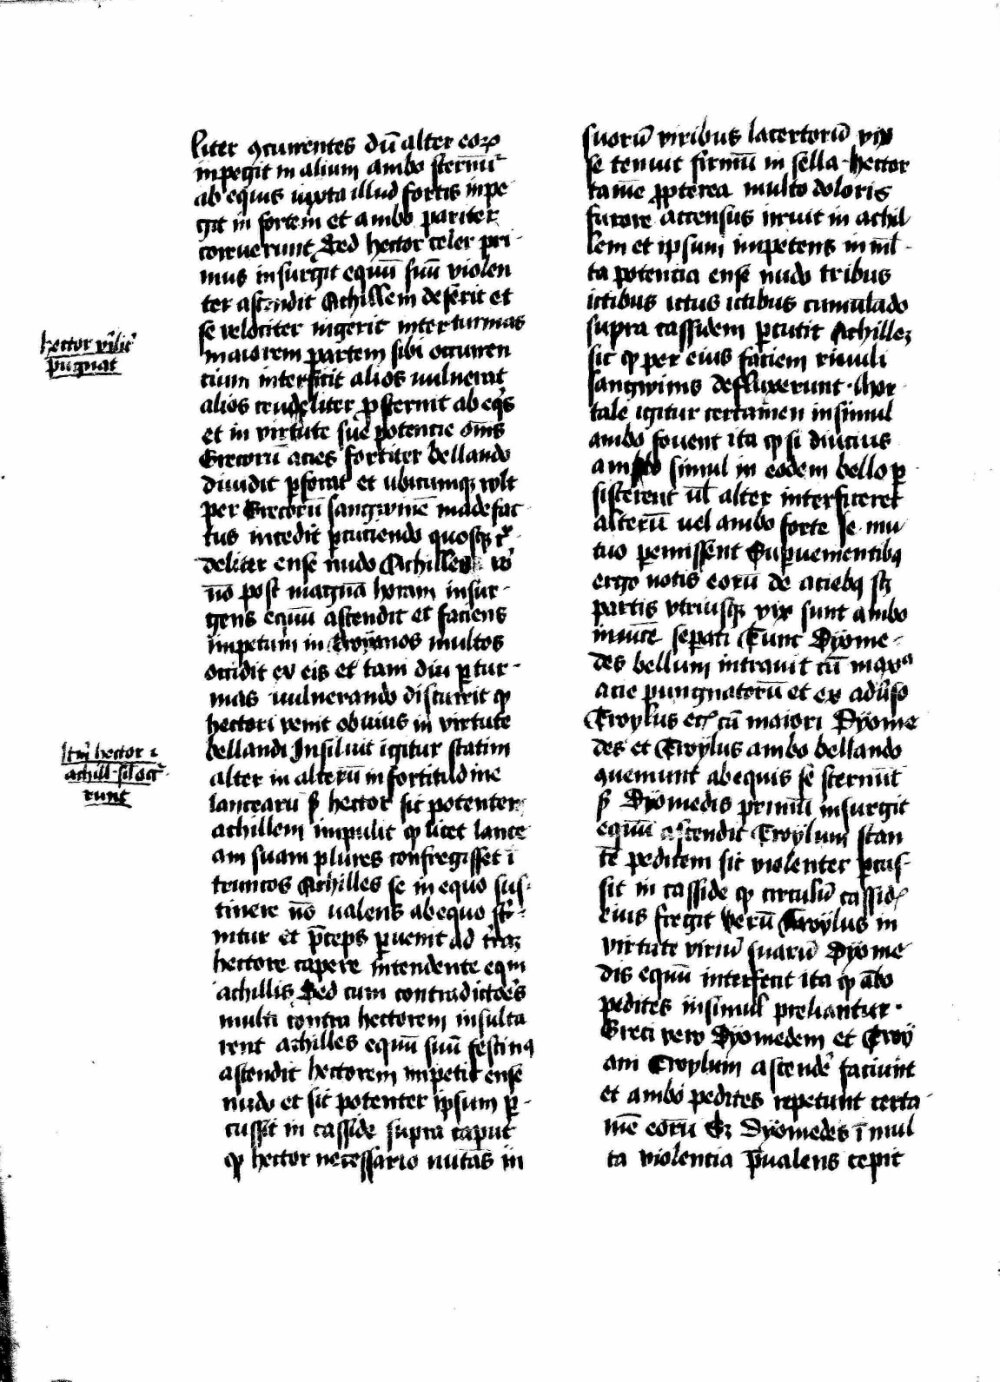 liter ꝯcurrentes dū alter eoꝝ
inpegit in alium ambo sternūt᷑
ab equis iuxta illud fortis inpe
git in fortem et ambo pariter
corruerunt Sed hector celer pri-
mus insurgit equū suū violen
ter ascendit Achillem deserit et
se velociter ingerit inter turmas
maiorem partem sibi occurren
cium interficit alios uulnerat
alios crudeliter ꝓsternit ab eqͥs
et in virtute sue potencie om̄s
Grecorū acies fortiter bellando
diuidit ꝑforat et ubicumqꝫ vult
per Grecorū sangwinē madefac
tus incedit ꝑcuciendo quosqꝫ cͬ
deliter ense nudo Achilles vͦ
nō post magnā horam insur-
gens equū ascendit et faciens
impetum in Troyanos multos
occidit ex eis et tam diu ꝑ tur-
mas uulnerando discurrit ꝙ
hectori venit obuius in virtute
bellandi Insiluit igitur statim
alter in alterū in fortitudine
lancearū sꝫ hector sic potenter
achillem impulit ꝙ licet lance
am suam plures confregisset ī
truncos Achilles se in equo sus-
tinere nō ualens ab equo st̄-
nitur et p̄ceps ꝑuenit ad t̄raꝫ
hectore capere intendente eqū
achillis Sed cum contradictoēs
multi contra hectorem insulta
rent achilles equū suū festinꝰ
ascendit hectorem impetit ense
nudo et sic potenter ipsum ꝑ-
cussit in casside supra caput
ꝙ hector necessario nutās in
hector viͥlit᷑
pugnat
Itm̄ hector ⁊
achill-sil̄ ꝯcr̄-
runt
suorū viribus lacertorū vix
se tenuit firmū in sella-hector
tamē ꝓpterea multo doloris
furore accensus irruit in achil
lem et ipsum impetens in ml̄-
ta potencia ense nudo tribus
ictibus ictus ictibus cumulādo
supra cassidem ꝑcutit Achilleꝫ
sic ꝙ per eius faciem riuuli
sangwinis defluxerunt · Mor
tale igitur certamen insimul
ambo fouent ita ꝙ si diucius
ambo simul in eodem bello ꝑ
sisterent ul̄ alter interficeret
alterū uel ambo forte se mu
tuo pemissent Supuementibꝰ
ergo notis eorū de aciebꝰ sꝫ
partis vtriusqꝫ vix sunt ambo
inuicē sepati Tunc Dÿome-
des bellum intrauit cū maxᵃ
acie pungnatorū et ex adūso
Troylus etc̄ cū maiori Dÿome
des et Troÿlus ambo bellando
quemunt ab equis se sternūt
sꝫ Dÿomedis primū insurgit
equū ascendit Troÿlum stan
tē peditem sic violenter ꝑcus-
sit in casside ꝙ circulū cassidꝭ
eius fregit verū Troÿlus in
virtute viriū suarū Dÿome
dis equū interfecit ita ꝙ ābo
pedites insimul preliantur ·
Greci vero Dÿomedem et Troÿ
am Troylum ascendē faciunt
et ambo pedites repetunt certa-
mē eorū Sꝫ Dÿomedes ī mul
ta violencia p̄ualens cepit